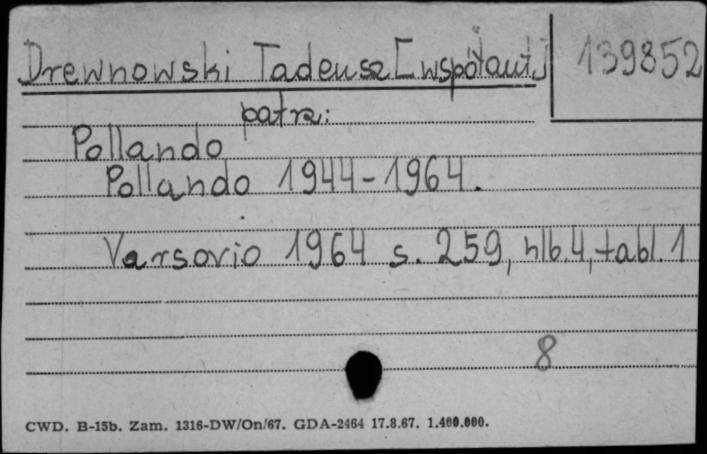 Drewnowski Tadeusz [współaut.] 139852
patrz:
Pollando
Pollando 1944-1964.
Varsovio 1964 s. 259, nlb. 4, tabl. 1
8
CWD. B-15b. Zam. 1316-DW/On/67. GDA-2464 17.8.67. 1.400.000.